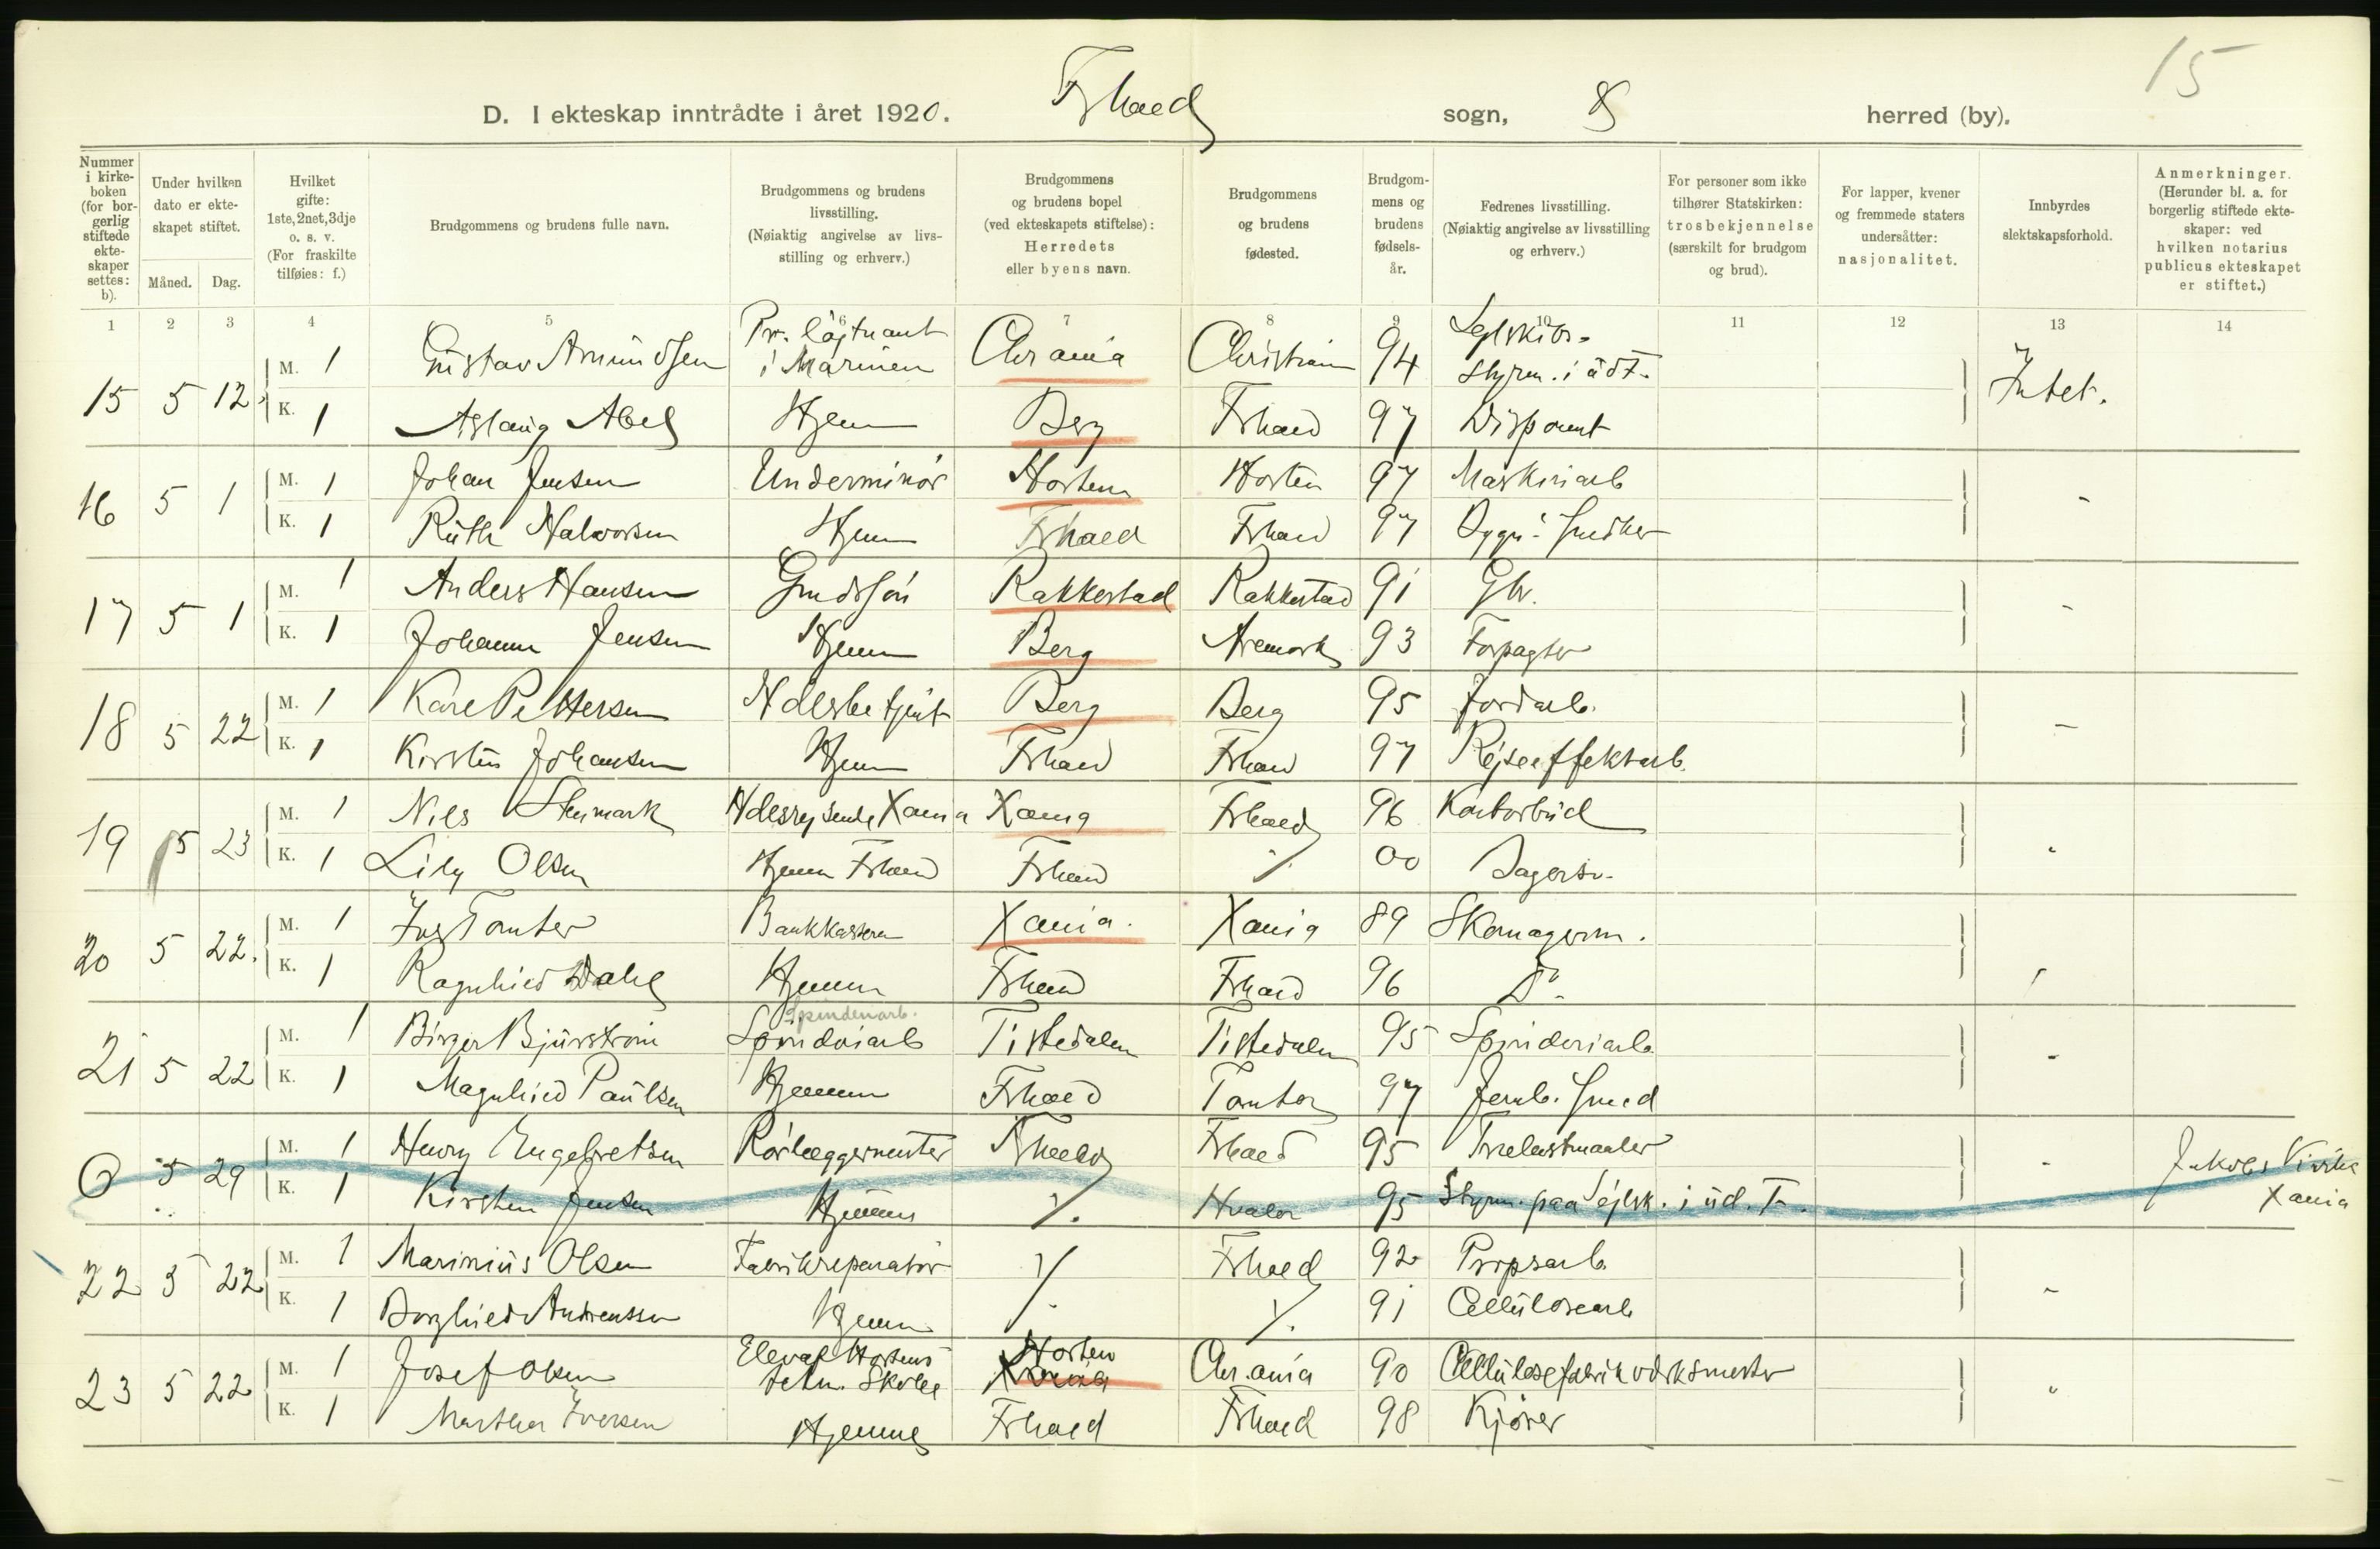 15
D. I ekteskap inntrådte i året 1920. Fr.hald sogn, herred (by).
Nummer i kirkeboken (for borgerlig stiftede ekteskaper settes: b).
Under hvilken dato er ekteskapet stiftet.
Måned. Dag.
Hvilket gifte: 1ste, 2net, 3dje o. s. v. (For fraskilte tilføies: f.)
Brudgommens og brudens fulle navn.
Brudgommens og brudens livsstilling. (Nøiaktig angivelse av livsstilling og erhverv.)
Brudgommens og brudens bopel (ved ekteskapets stiftelse): Herredets eller byens navn.
Brudgommens og brudens fødested.
Brudgommens og brudens fødselsår.
Fedrenes livsstilling. (Nøiaktig angivelse av livsstilling og erhverv.)
For personer som ikke tilhører Statskirken: trosbekjennelse (særskilt for brudgom og brud).
For lapper, kvener og fremmede staters undersåtter: nasjonalitet.
Innbyrdes slektskapsforhold.
Anmerkninger. (Herunder bl. a. for borgerlig stiftede ekteskaper: ved hvilken notarius publicus ekteskapet er stiftet.)
1 2 3 4 5 6 7 8 9 10 11 12 13 14
15 5 12 M. 1 Gustav Amundsen Pr. löjtnant i Marinen Chr ania Christian 94 Sejlskibs- styrm. i udf. Intet.
K. 1 Aslaug Abel Hjem Berg Frhald 97 Disponent
16 5 1 M. 1 Johan Jensen Underminör Horten Horten 97 Maskinarb -
K. 1 Ruth Halvorsen Hjem Frhald Frhald 97
17 5 1 M. 1 Anders Hansen Rakkestad Rakkestad 91 -
K. 1 Johanne Jensen Hjem Berg Aremark 93 Forpagter
18 5 22 M. 1 Kåre Pettersen Hdlsbetjent Berg Berg 95 Jordarb. -
K. 1 Kirsten Johansen Hjem Frhald Frhald 97 Rejseeffektarb.
19 5 23 M. 1 Nils Stenmark Hdlsrejsende Xania Xania Frhald 96 Kontorbud "
K. 1 Lily Olsen Hjem Frhald Frhald ./. 00
20 5 22. M. 1 Bankkasserer Xania. Xania 89 Skomagerm.
K. 1 Ragnhild Dahl Hjemme Frhald Frhald 96 Do.
Spinderiarb.
21 5 22 M. 1 Birger Bjurström Spinderiarb Tistedalen Tistedalen 95 Spinderiarb -
K. 1 Magnhild Paulsen Hjemme Frhald 97 Jernb. Smed
0 5 29 M. 1 Henry Engebretsen Rörlæggermester Frhald Frhald 95 Trælastmaaler - Jakobs Kirke
K. 1 Kirsten Jensen Hjemme ./. Hvaler 95 Styrm. paa Sejlsk. i ud. F. Xania
22 5 22 M. 1 Marinius Olsen Fabrikreparatör ./. Frhald 92 Propsarb -
K. 1 Borghild Andreassen Hjemme ./. 91 Cellulosearb
23 5 22 M. 1 Josef Olsen Elev af Hortens tekn. Skole Horten Xania Chr.ania 90 Cellulosefabrik værksmester "
K. 1 Martha Iversen Hjemme Frhald Frhald 98 Kjörer